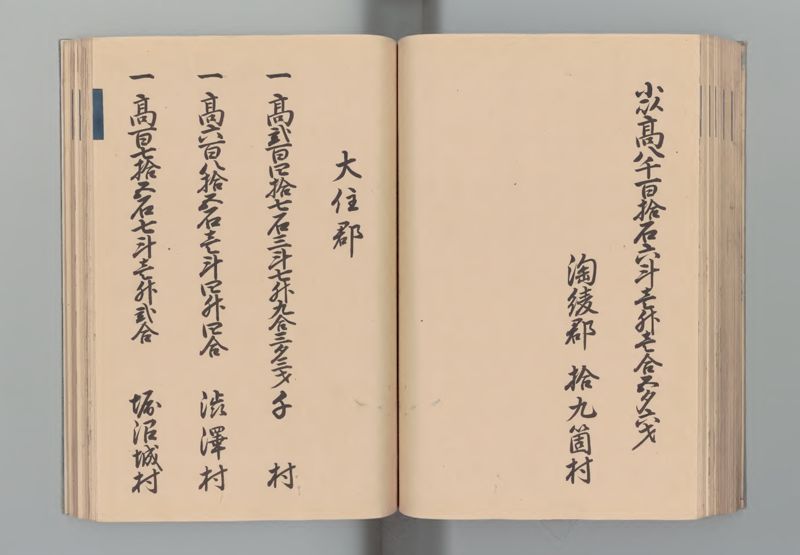 小以高八千百拾石六斗壱升壱合五夕六才
淘綾郡 拾九箇村
大住郡
一 高弐百四拾七石三斗七升九合三夕三才 千村
一 高六百八拾五石壱斗四升四合 渋澤村
一 高百七拾五石七斗壱升弐合 堀沼城村